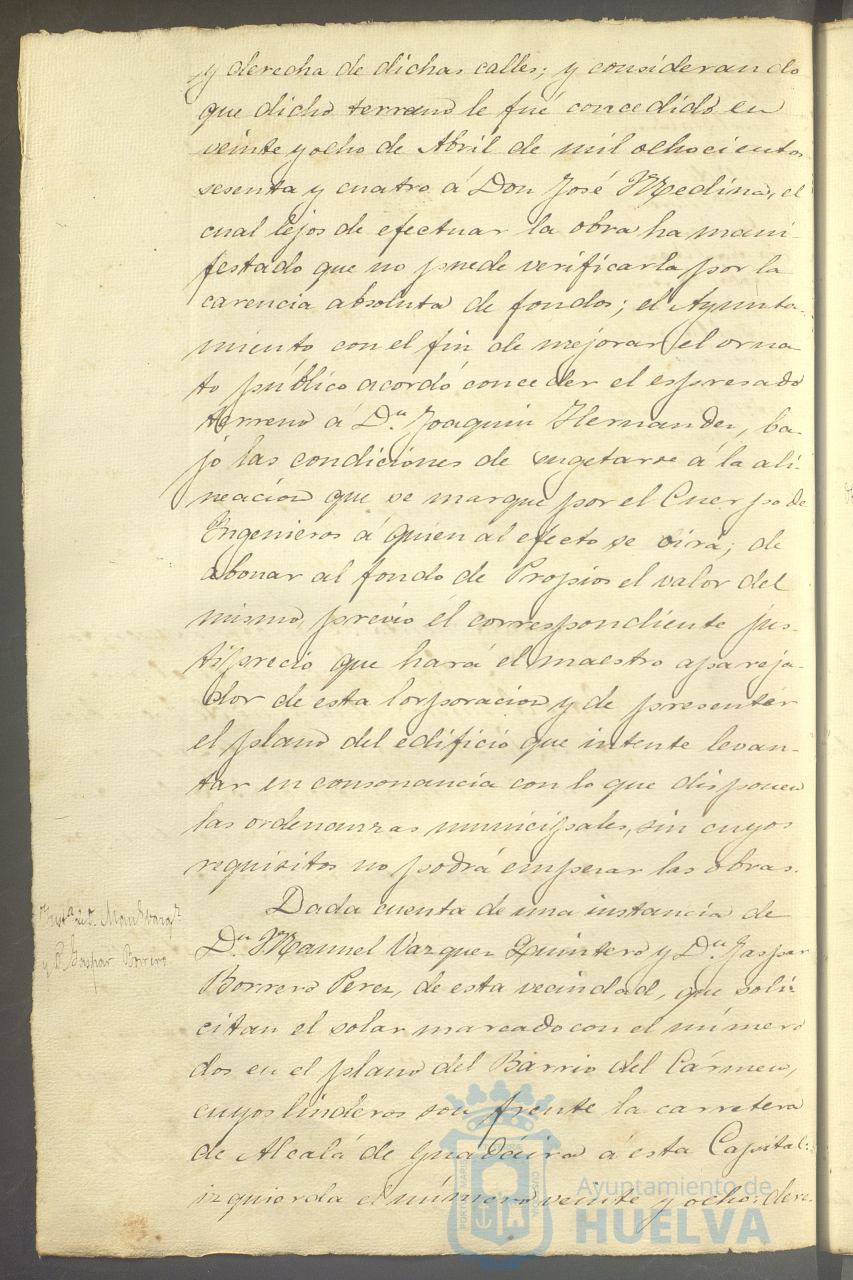 y derecha de dichas calles; y considerando
que dicho terreno le fué concedido en
veinte y ocho de Abril de mil ochocientos
sesenta y cuatro á Don José Medina, el
cual lejos de efectuar la obra ha mani-
festado que no puede verificarla por la
carencia absoluta de fondos; el Ayunta-
miento con el fin de mejorar el orna
to público acordó conceder el espresado
terreno á Dn. Joaquin Hernandez, ba-
jo las condiciones de sugetarse á la ali-
neacion que se marque por el Cuerpo de
Engenieros á quien al efecto se oirá; de
abonar al fondo de Propios el valor del
mismo, previo el correspondiente jus-
tipreció que hará el maestro apareja-
dor de esta Corporacion y de presentar
el plano del edificio que intente levan-
tar en consonancia con lo que disponen
las ordenanzas municipales, sin cuyos
requisitos no podrá empezar las obras.
Dada cuenta de una instancia de
Dn. Manuel Vazquez Quintero y Dn. Gaspar
Borrero Perez, de esta vecindad, que soli-
citan el solar marcado con el número
dos en el plano del Barrio del Cármen,
cuyos linderos son frente la carretera
de Alcalá de Guadaira á esta Capital:
izquierda el número veinte y ocho: dere
Insta. de D. Manl. Vazqz.
y D. Gaspar Borrero
Ayuntamiento de
HUELVA